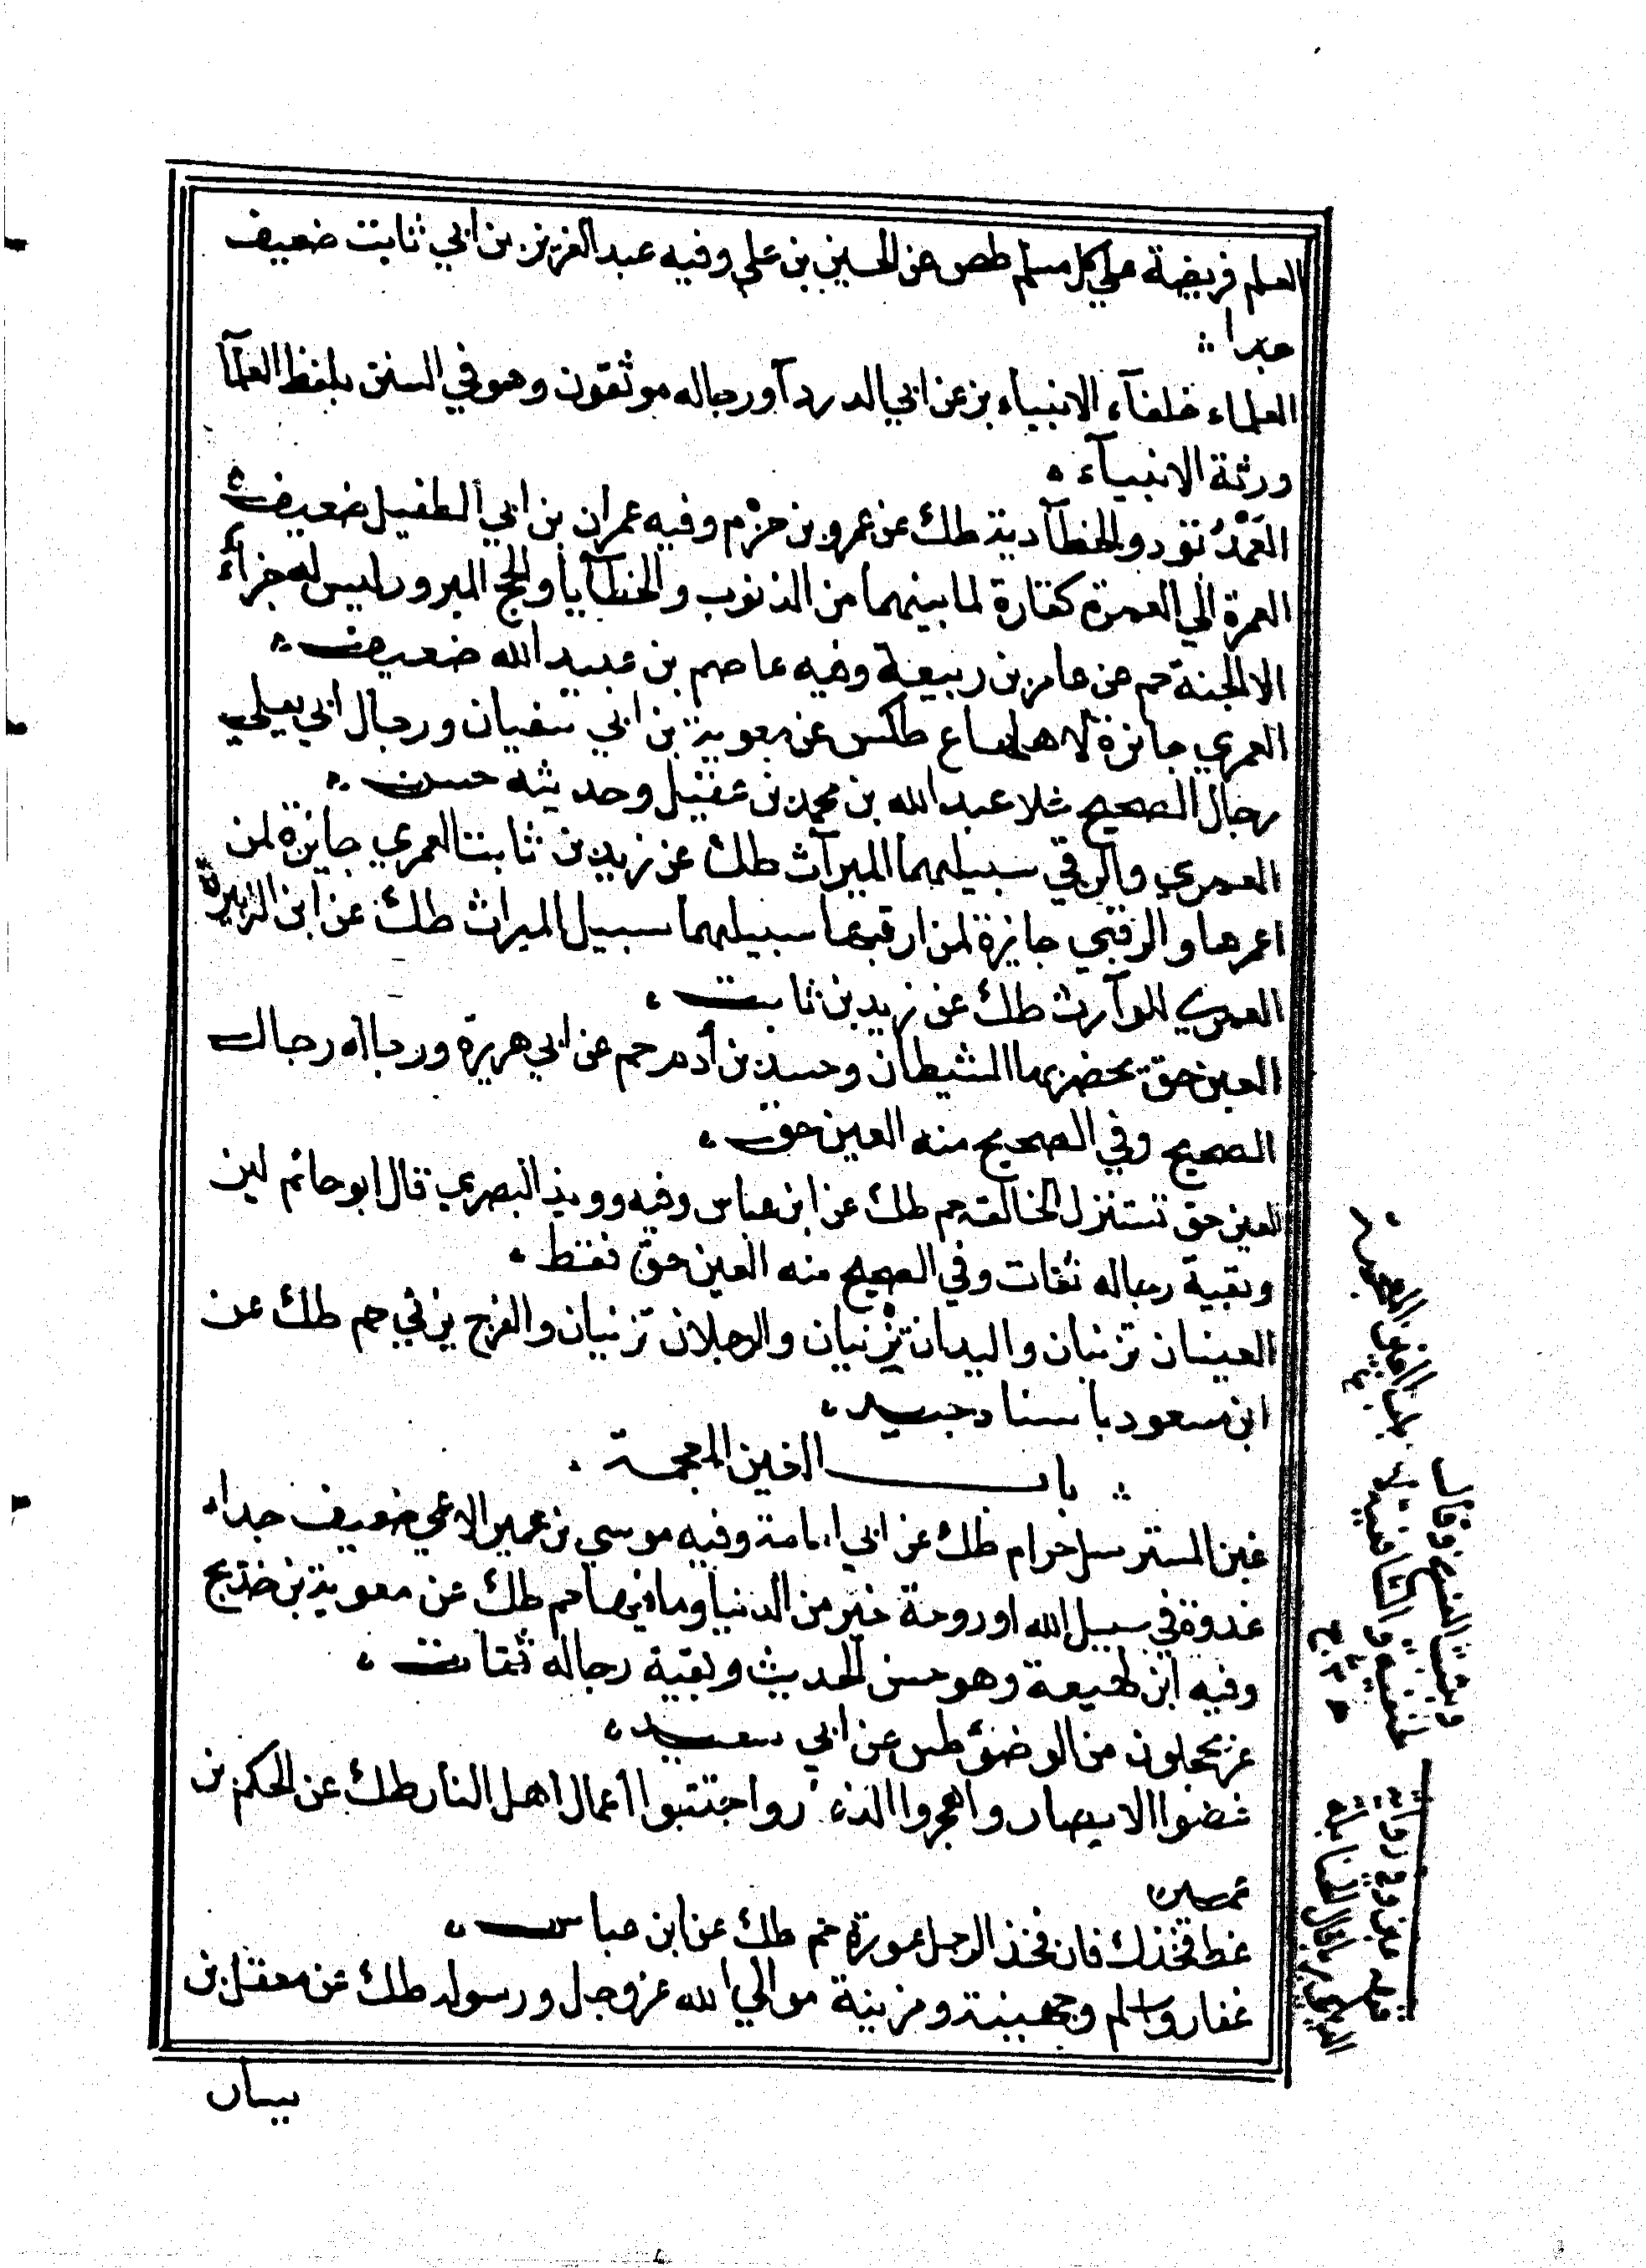 العلم فريضة علي كل مسلم طص عن الحسين بن علي وفيه عبد العزيز بن ابي ثابت ضعيف
جدا
العلماء خلفآء الانبياء بز عن ابي الدردآ ورجاله موثقون وهو في السنن بلفظ العلمآ
ورثة الانبيآء
العَمْدُ قود والخطآ دية طك عن عمرو بن حزم وفيه عمران بن ابي الطفيل ضعيف
العمرة الي العمرة كفارة لما بينهما من الذنوب والخطآيا والحج المبرور ليس له جزآء
الا الجنة حم عن عامر بن ربيعة وفيه عاصم بن عبيد الله ضعيف
العمري جائزة لاهلها ع طكس عن معوية بن ابي سفيان ورجال ابي يعلي
رجال الصحيح خلا عبد الله بن محمد بن عقيل وحديثه حسن
العمري والرقبي سبيلهما الميرآث طك عن زيد بن ثابت العمري جايزة لمن
اعمرها والرقبي جايزة لمن ارقبها سبيلهما سبيل الميراث طك عن ابن الزبير
العمري للوآرث طك عن زيد بن ثابت
العين حق يحضر بها الشيطان وحسد بن أدم حم عن ابي هريرة ورجاله رجال
الصحيح وفي الصحيح منه العين حق
العين حق تستنزل الحالق حم طك عن ابن عباس وفيه دويد البصري قال ابو حاتم لين
وبقية رجاله ثقات وفي الصحيح منه العين حق فقط
العينان تزنيان واليدان تزْنيان والرجلان تزنيان والفرج يزني حم طك عن
ابن مسعود باسناد جيد
باب الغين المعجمة
غبن المسترسل حرام طك عن ابي امامة وفيه موسي بن عمير الاعمي ضعيف جدا
غدوة في سبيل الله او روحة خير من الدنيا وما فيها حم طك عن معوية بن خديج
وفيه ابن لهيعة وهو حسن الحديث وبقية رجاله ثقات
غر محجلون من الوضؤ طس عن ابي سعيد
غضوا الابصار واهجروا الذعار واجتنبوا أعمال اهل النار طك عن الحكم بن
عمير
غط فخذك فان فخذ الرجل عورة حم طك عن ابن عباس
غفار واسلم وجهينة ومزينة موالي الله عز وجل ورسوله طك عن معقل بن
يسار